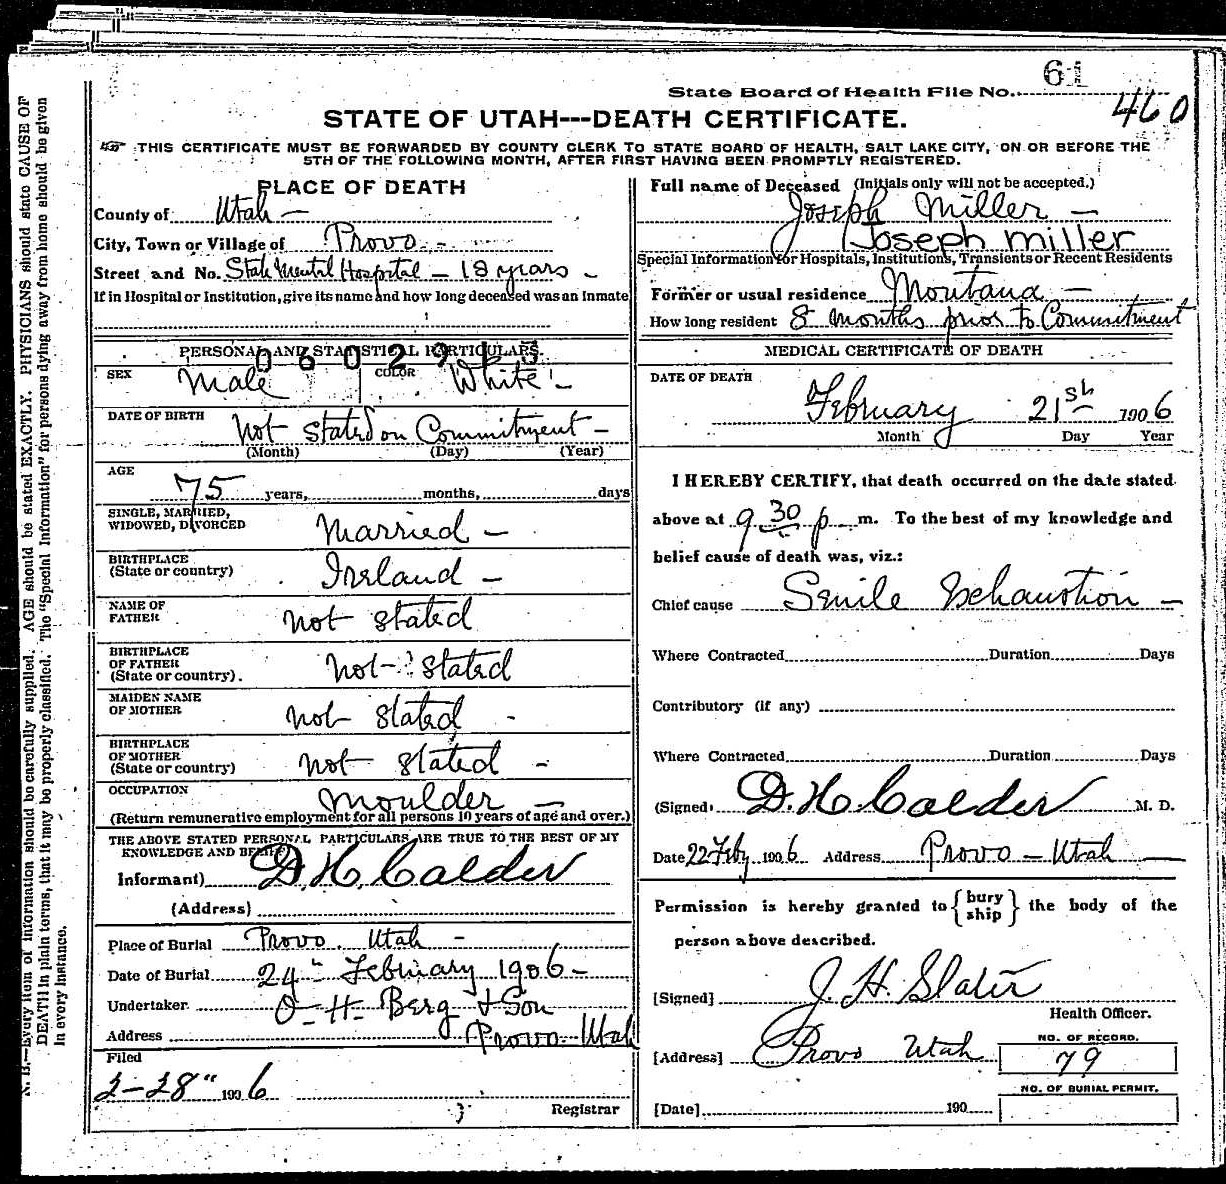 State Board of Health File No. 61
460
STATE OF UTAH---DEATH CERTIFICATE.
THIS CERTIFICATE MUST BE FORWARDED BY COUNTY CLERK TO STATE BOARD OF HEALTH, SALT LAKE CITY, ON OR BEFORE THE
5TH OF THE FOLLOWING MONTH, AFTER FIRST HAVING BEEN PROMPTLY REGISTERED.
PLACE OF DEATH
County of Utah —
City, Town or Village of Provo. -
Street and No. State Mental Hospital — 18 years -
If in Hospital or Institution, give its name and how long deceased was an Inmate
PERSONAL AND STATISTICAL PARTICULARS
SEX Male COLOR White -
DATE OF BIRTH not stated on Commitment —
(Month) (Day) (Year)
AGE
75 years, months, days
SINGLE, MARRIED,
WIDOWED, DIVORCED Married —
BIRTHPLACE
(State or country) Ireland —
NAME OF
FATHER not stated
BIRTHPLACE
OF FATHER
(State or country). not stated
MAIDEN NAME
OF MOTHER not stated -
BIRTHPLACE
OF MOTHER
(State or country) not stated -
OCCUPATION Moulder —
(Return remunerative employment for all persons 10 years of age and over.)
THE ABOVE STATED PERSONAL PARTICULARS ARE TRUE TO THE BEST OF MY
KNOWLEDGE AND BELIEF
Informant) D. H. Calder
(Address)
Place of Burial Provo. Utah -
Date of Burial 24" February 1906 -
Undertaker O. H. Berg & Son
Address Provo. Utah
Filed
2-28" 1906
Registrar
Full name of Deceased (Initials only will not be accepted.)
Joseph Miller —
Joseph Miller
Special Information for Hospitals, Institutions, Transients or Recent Residents
Former or usual residence Montana —
How long resident 8 months prior to Commitment
MEDICAL CERTIFICATE OF DEATH
DATE OF DEATH
February 21st 1906
Month Day Year
I HEREBY CERTIFY, that death occurred on the date stated
above at 9 30 p m. To the best of my knowledge and
belief cause of death was, viz.:
Chief cause Senile Exhaustion —
Where Contracted Duration Days
Contributory (if any)
Where Contracted Duration Days
(Signed) D. H. Calder M. D.
Date 22 Feby 1906 Address Provo — Utah
Permission is hereby granted to {bury
ship} the body of the
person above described.
[Signed] J. H. Slater
Health Officer.
[Address] Provo Utah
NO. OF RECORD.
79
NO. OF BURIAL PERMIT.
[Date] 190
N. B.—Every item of information should be carefully supplied. AGE should be stated EXACTLY. PHYSICIANS should state CAUSE OF
DEATH in plain terms, that it may be properly classified. The "Special Information" for persons dying away from home should be given
in every instance.